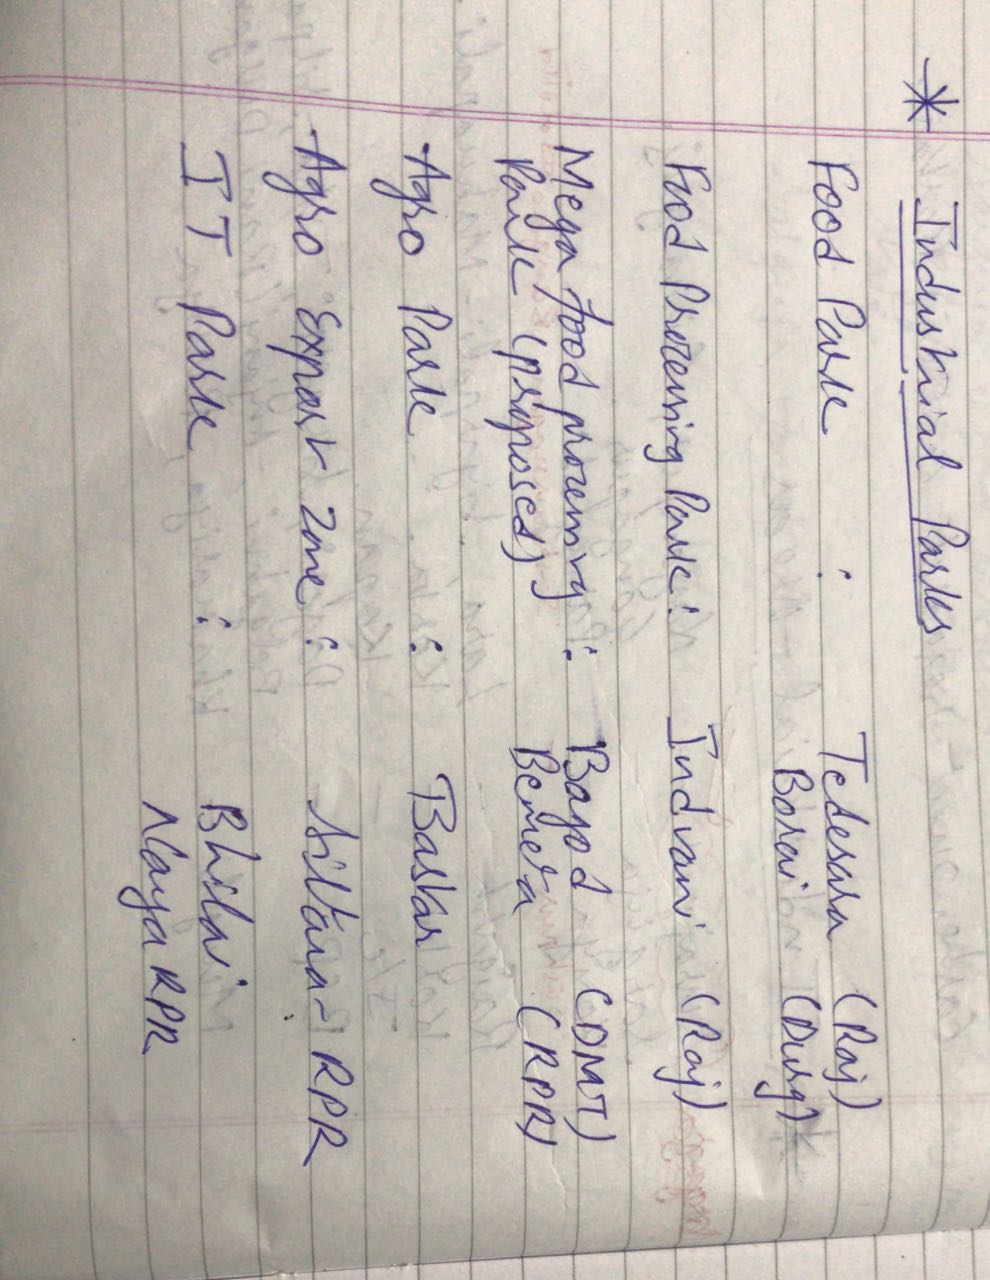 * Industrial Parks
Food Park : Tedesara (Raj)
Borai (Durg)
Food Processing Park : Indvani (Raj)
Mega food processing : Bagod (DMT)
Park (proposed) Bemera (RPR)
Agro Park : Bastar
Agro Export Zone : Siltara - RPR
IT Park : Bhilai
Naya RPR